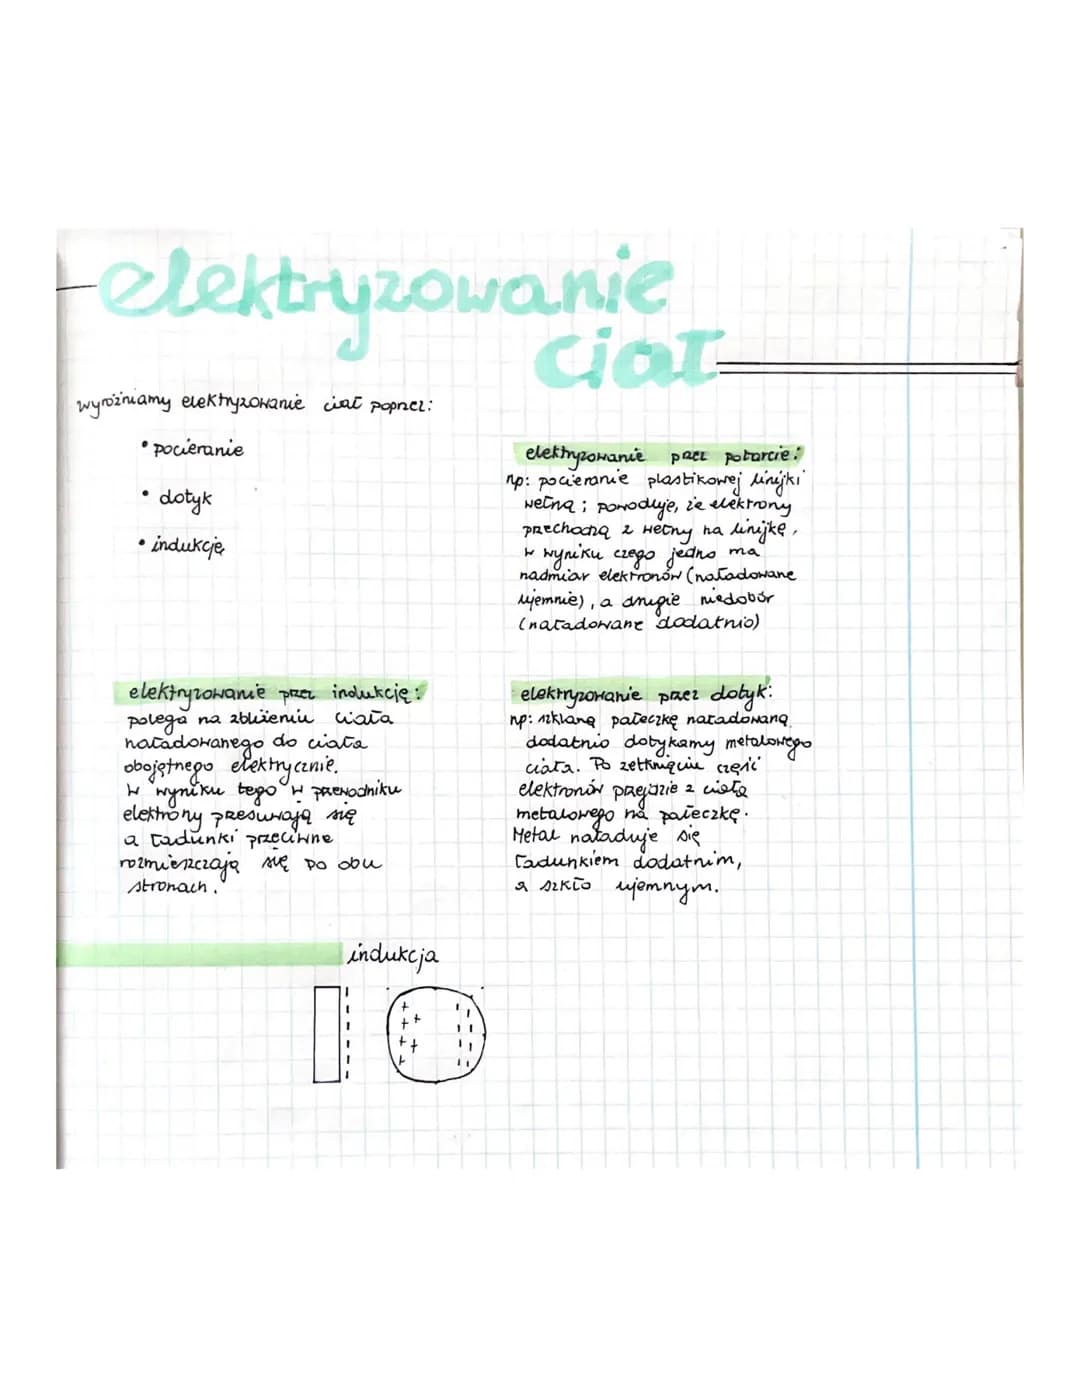 elektryzowanie
ciał
wyróżniamy elektryzowanie ciał poprzez:
• pocieranie
• dotyk
• indukcję
elektryzowanie przez potarcie:
np: pocieranie plastikowej linijki
wełną; powoduje, że elektrony
przechodzą z wełny na linijkę,
w wyniku czego jedno ma
nadmiar elektronów (naładowane
ujemnie), a drugie niedobór
(naładowane dodatnio)
elektryzowanie przez indukcję:
polega na zbliżeniu ciała
naładowanego do ciała
obojętnego elektrycznie.
W wyniku tego w przewodniku
elektrony przesuwają się
a ładunki przeciwne
rozmieszczają się po obu
stronach.
elektryzowanie przez dotyk:
np: szklaną pałeczkę naładowaną
dodatnio dotykamy metalowego
ciała. Po zetknięciu część
elektronów przejdzie z ciała
metalowego na pałeczkę.
Metal naładuje się
ładunkiem dodatnim,
a szkło ujemnym.
indukcja